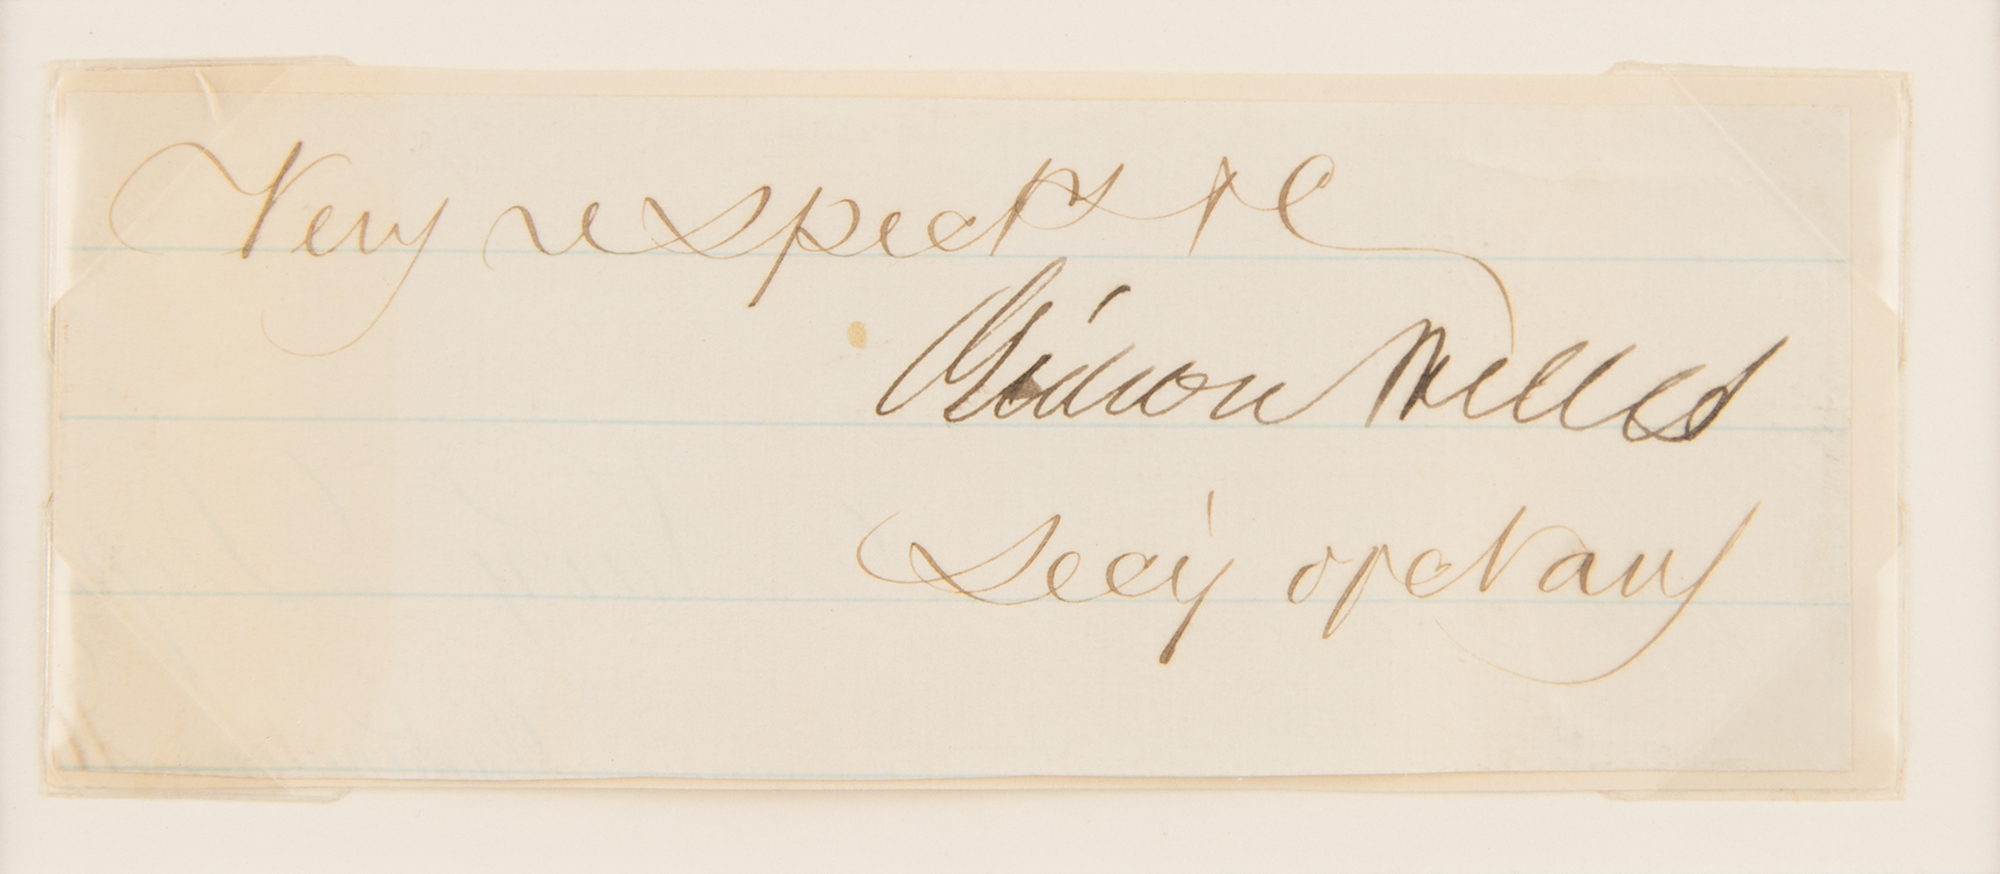 Very respects &c
Gideon Welles
Sec'y of Navy